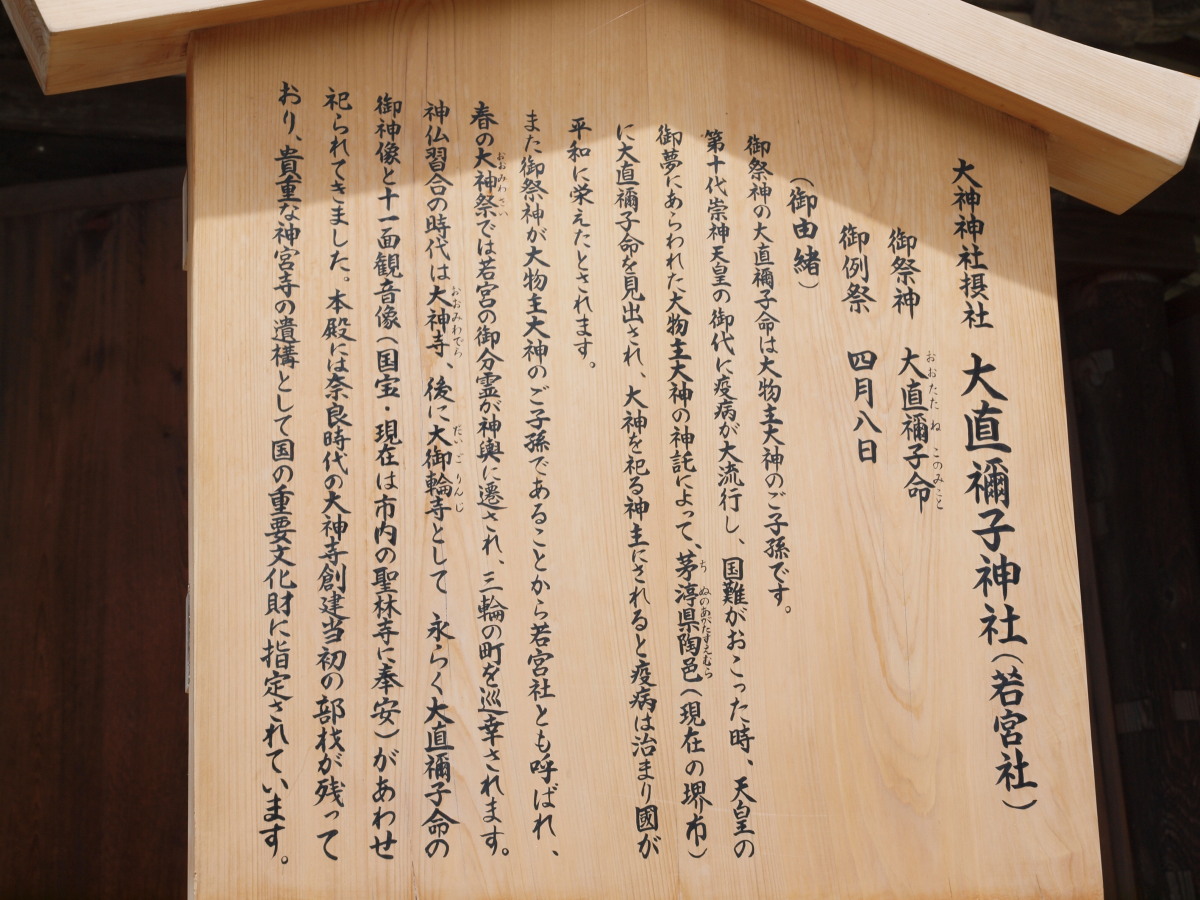 大神神社摂社 大直禰子神社(若宮社)
御祭神 大直禰子命
おおたた ね このみこと
御例祭 四月八日
(御由緒)
御祭神の大直禰子命は大物主大神のご子孫です。
第十代崇神天皇の御代に疫病が大流行し、国難がおこった時、天皇の
御夢にあらわれた大物主大神の神託によって、茅渟県陶邑(現在の堺市)
ち ぬのあがたすえむら
に大直禰子命を見出され、大神を祀る神主にされると疫病は治まり國が
平和に栄えたとされます。
また御祭神が大物主大神のご子孫であることから若宮社とも呼ばれ、
春の大神祭では若宮の御分霊が神輿に遷され、三輪の町を巡幸されます。
おおみわさい
神仏習合の時代は大神寺、後に大御輪寺として 永らく大直禰子命の
おおみわでら だいごりんじ
御神像と十一面観音像(国宝・現在は市内の聖林寺に奉安)があわせ
祀られてきました。本殿には奈良時代の大神寺創建当初の部材が残って
おり、貴重な神宮寺の遺構として国の重要文化財に指定されています。